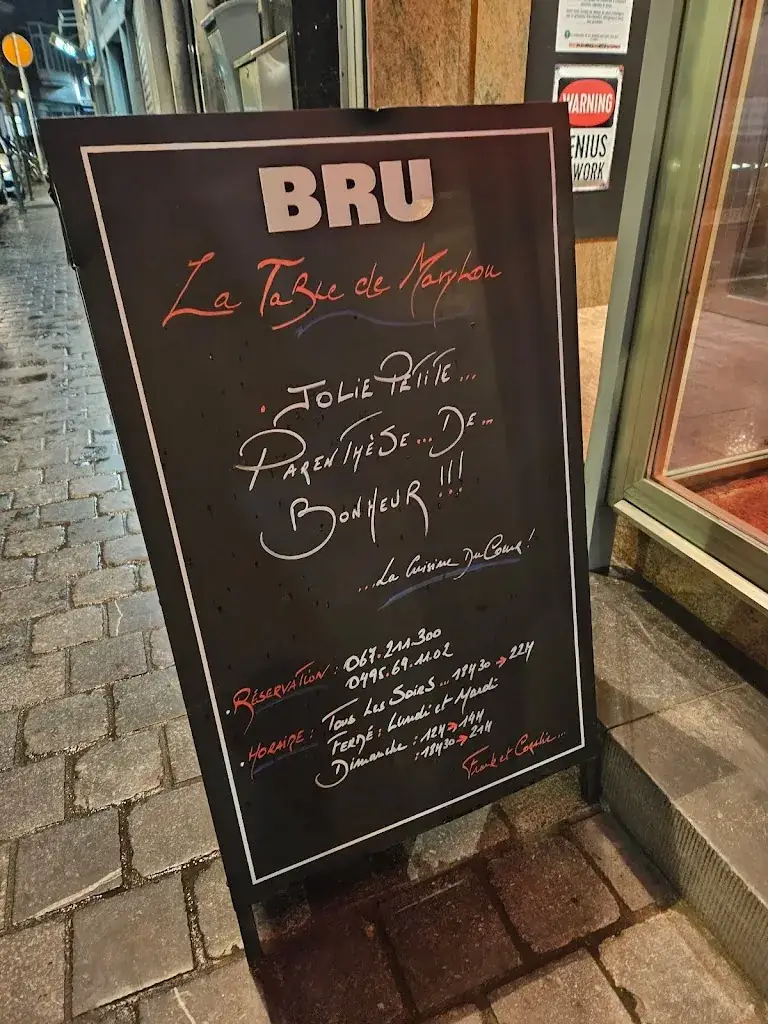 BRU
La Table de Marylou
. JOLIE PETITE...
PARENTHÈSE... DE...
BONHEUR !!!
...La Cuisine Du Coeur !
. RÉSERVATION : 067.211.300
0495.69.11.02
. HORAIRE : TOUS LES SOIRS... 18H30 → 22H
FERMÉ : Lundi et Mardi
Dimanche : 12H → 14H
: 18H30 → 21H
Frank et
WARNING
ENIUS
WORK